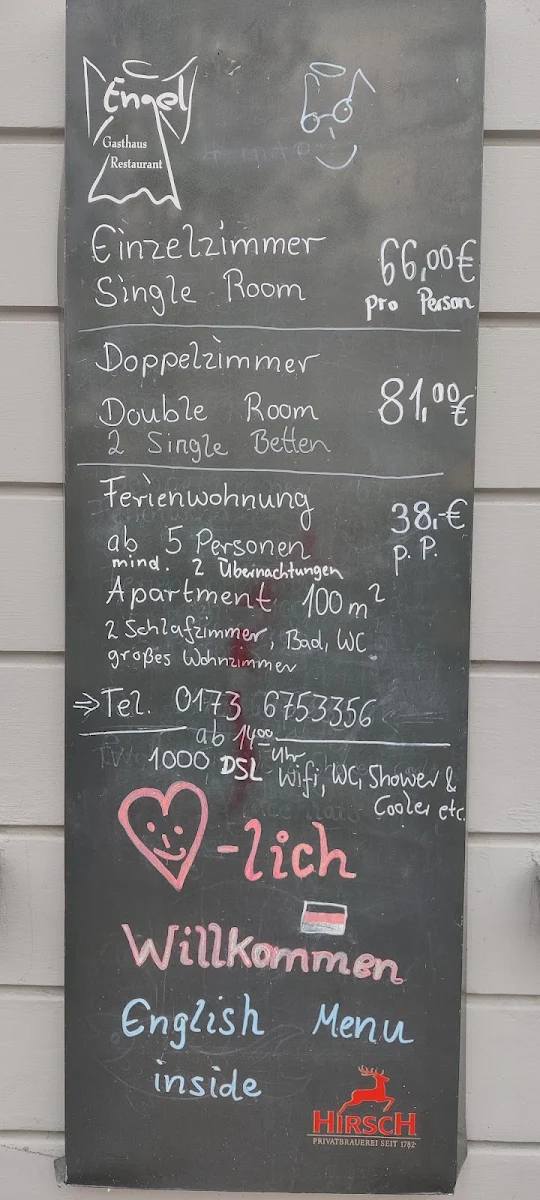 Engel
Gasthaus
Restaurant
Einzelzimmer
Single Room
66,00€
pro Person
Doppelzimmer
Double Room
81,00€
2 Single Betten
Ferienwohnung
38,-€
ab 5 Personen
p. P.
mind. 2 Übernachtungen
Apartment 100m²
2 Schlafzimmer, Bad, WC
großes Wohnzimmer
⇒Tel. 0173 6753356
ab 14⁰⁰ Uhr
1000 DSL Wifi, WC, Shower &
Cooler etc.
-lich
Willkommen
English Menu
inside
HIRSCH
PRIVATBRAUEREI SEIT 1782